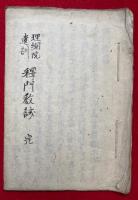 理綱院
遺訓
釋門教誡 完